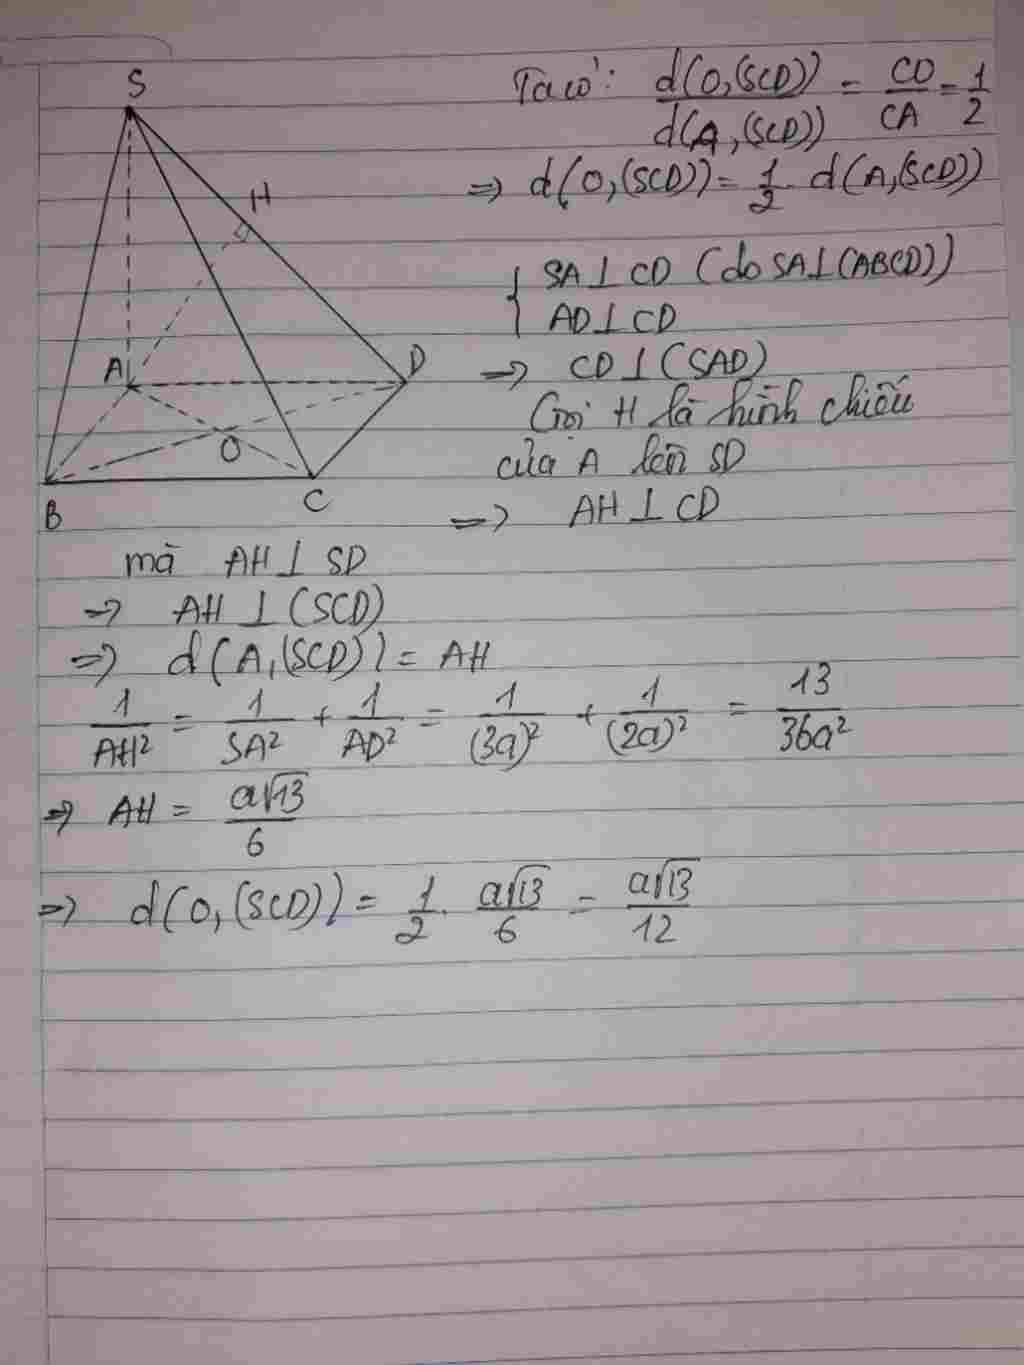 S
H
A
D
O
B
C
Ta có: d(O,(SCD)) / d(A,(SCD)) = CO/CA = 1/2
=> d(O,(SCD)) = 1/2 . d(A,(SCD))
{ SA ⊥ CD (do SA ⊥ (ABCD))
AD ⊥ CD
=> CD ⊥ (SAD)
Gọi H là hình chiếu
của A lên SD
=> AH ⊥ CD
mà AH ⊥ SD
=> AH ⊥ (SCD)
=> d(A,(SCD)) = AH
1/AH² = 1/SA² + 1/AD² = 1/(3a)² + 1/(2a)² = 13/36a²
=> AH = a√13/6
=> d(O,(SCD)) = 1/2 . a√13/6 = a√13/12